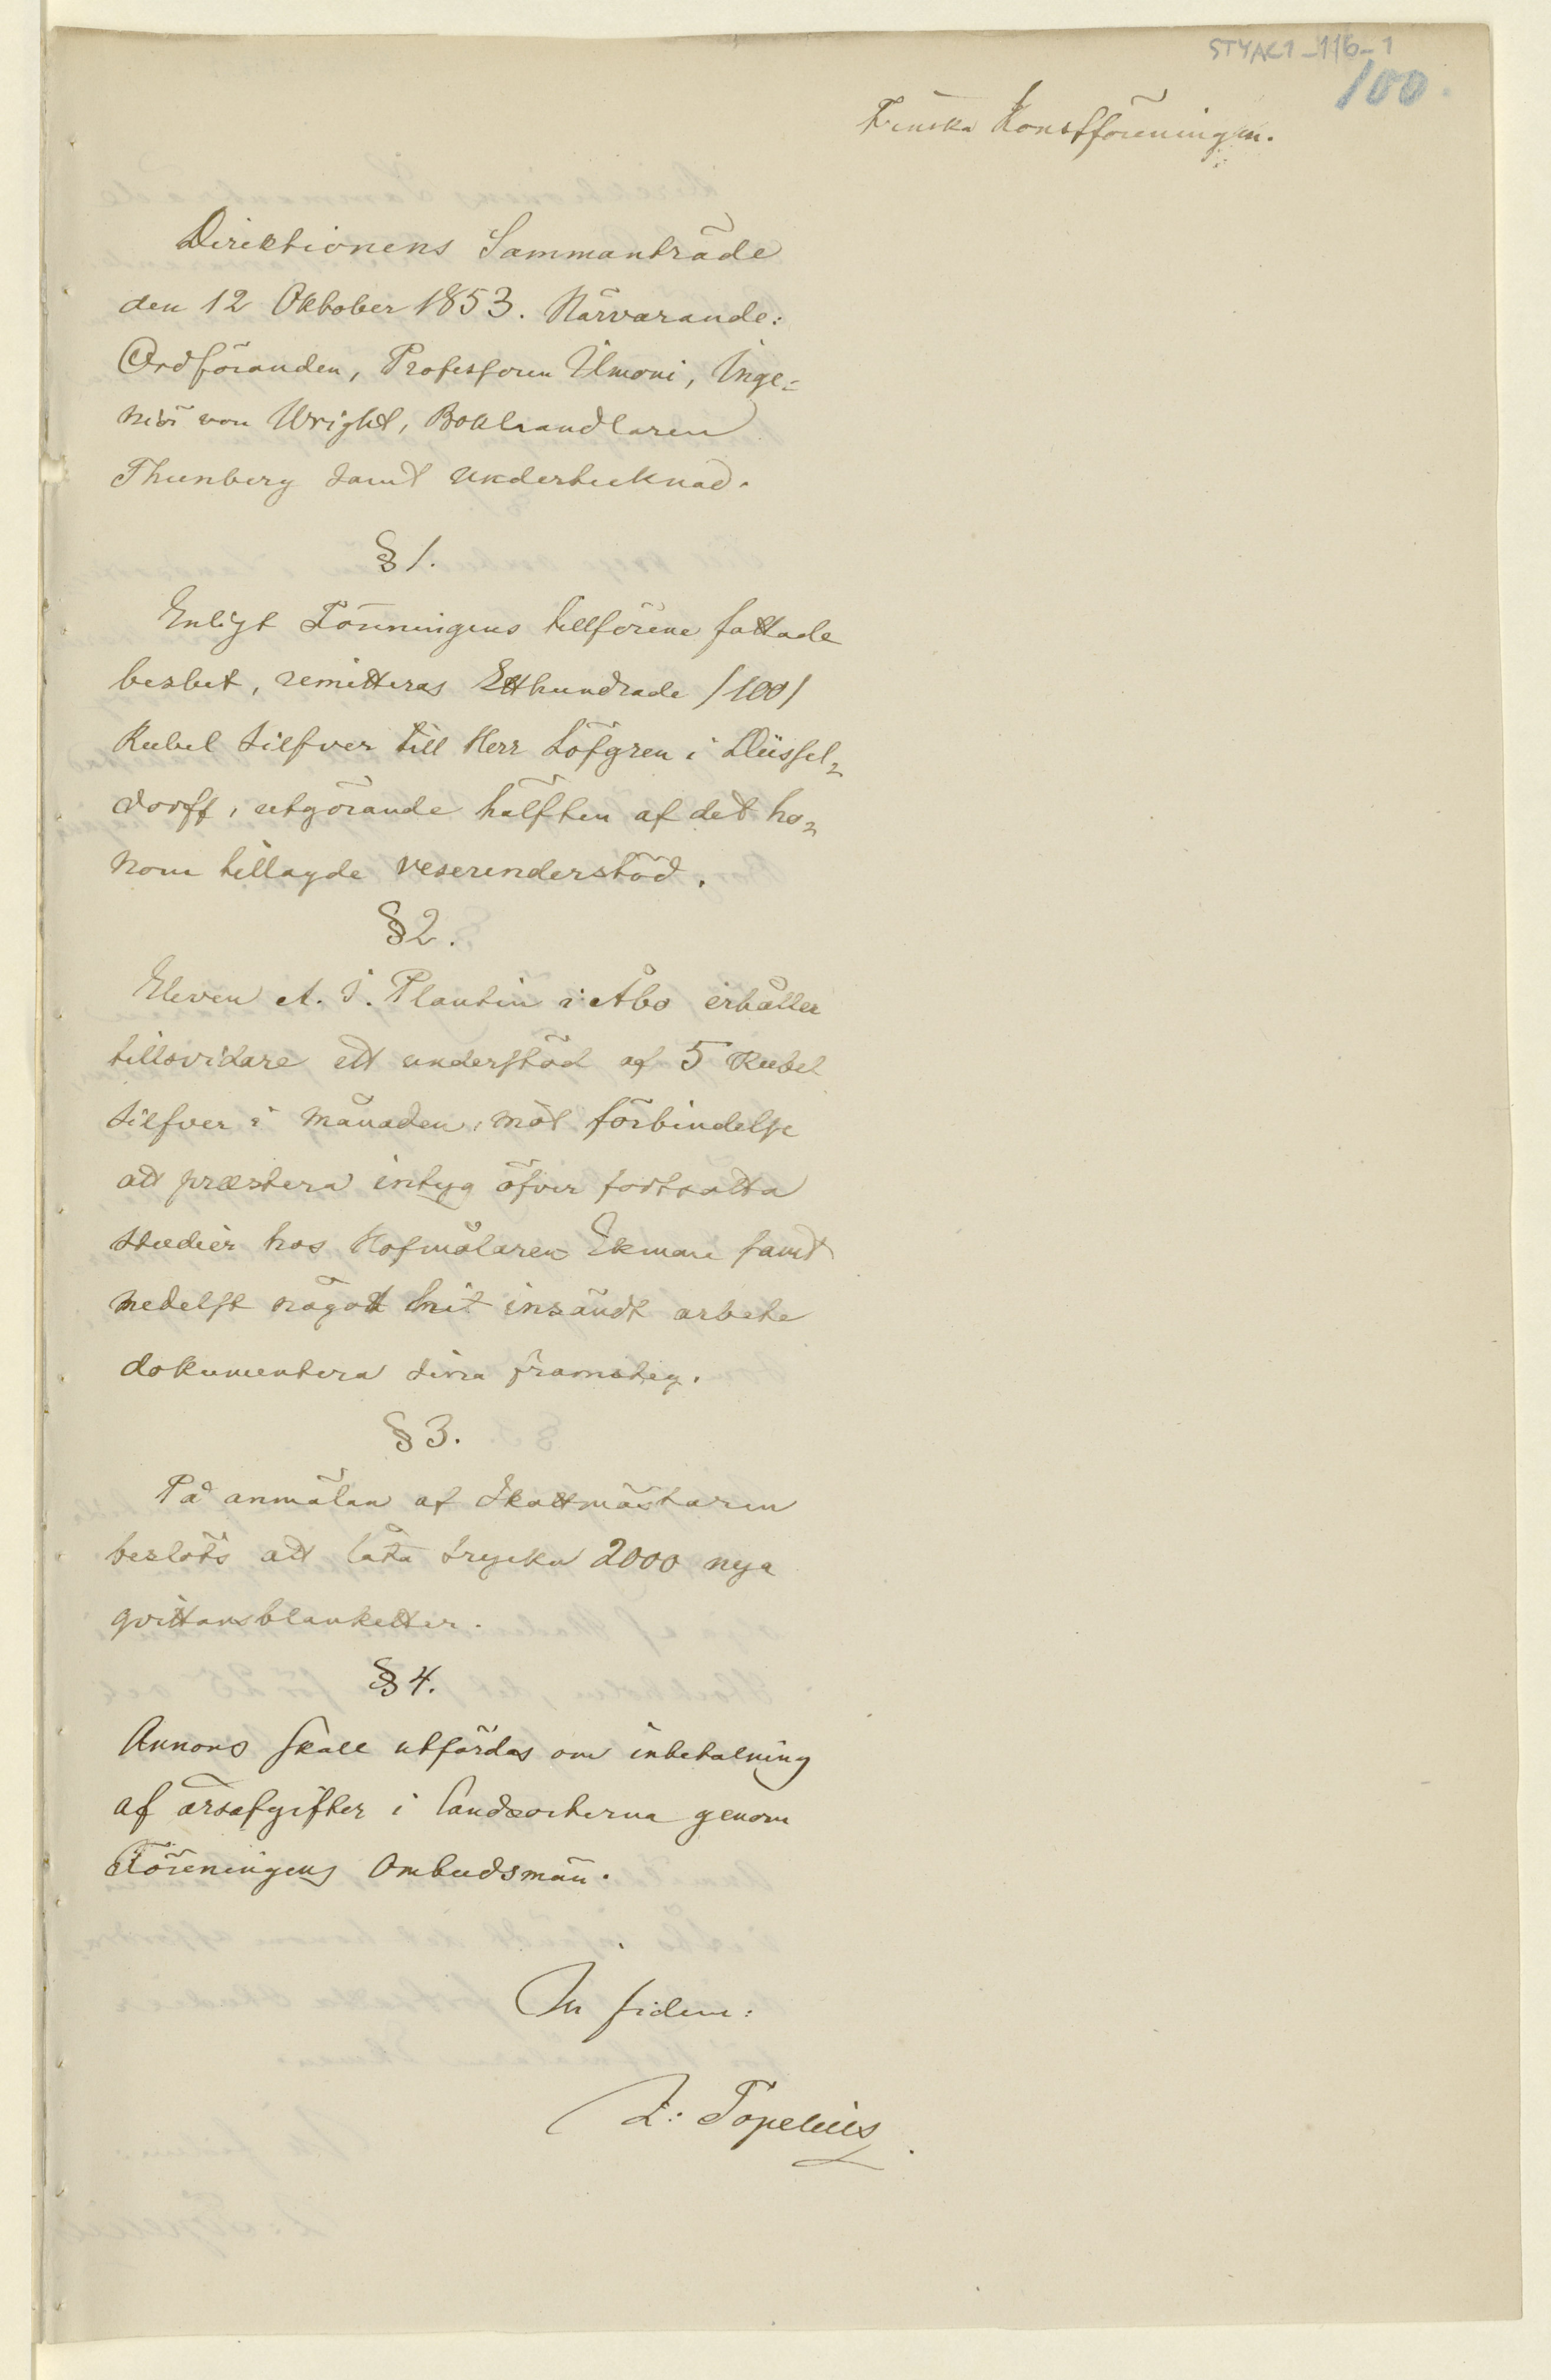 STYAC1_116_1
100.
Finska Konstföreningen.
Direktionens Sammanträde
den 12 Oktober 1853. Närvarande:
Ordföranden, Professoren Ilmoni, Inge=
niör von Wright, Bokhandlaren
Thunberg samt undertecknad.
§ 1.
Enligt Föreningens tillförene fattade
beslut, remitteras Etthundrade /100/
Rubel silfver till Herr Löfgren i Düssel=
dorff, utgörande hälften af det ho=
nom tillagde reseunderstöd.
§ 2.
Eleven A. J. Plantin i Åbo erhåller
tillsvidare ett understöd af 5 Rubel
silfver i månaden, mot förbindelse
att præstera intyg öfver fortsatta
studier hos Hofmålaren Ekman samt
medelst något hit insändt arbete
dokumentera sina framsteg.
§ 3.
På anmälan af Skattmästaren
beslöts att låta trycka 2000 nya
qvittansblanketter.
§ 4.
Annons skall utfärdas om inbetalning
af årsafgifter i landsorterna genom
Föreningens Ombudsmän.
In fidem:
Z: Topelius